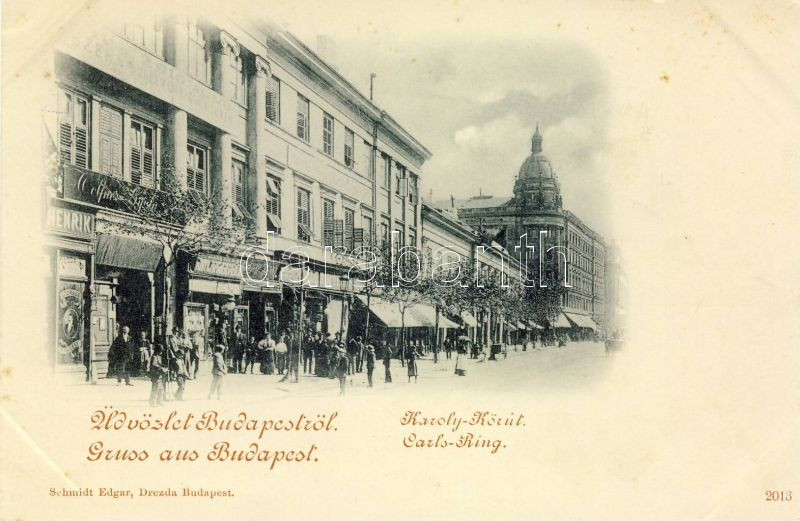 HENRIK
darabanth
Üdvözlet Budapestről.
Gruss aus Budapest.
Karoly-Körút.
Carls-Ring.
Schmidt Edgar, Drezda Budapest.
2013